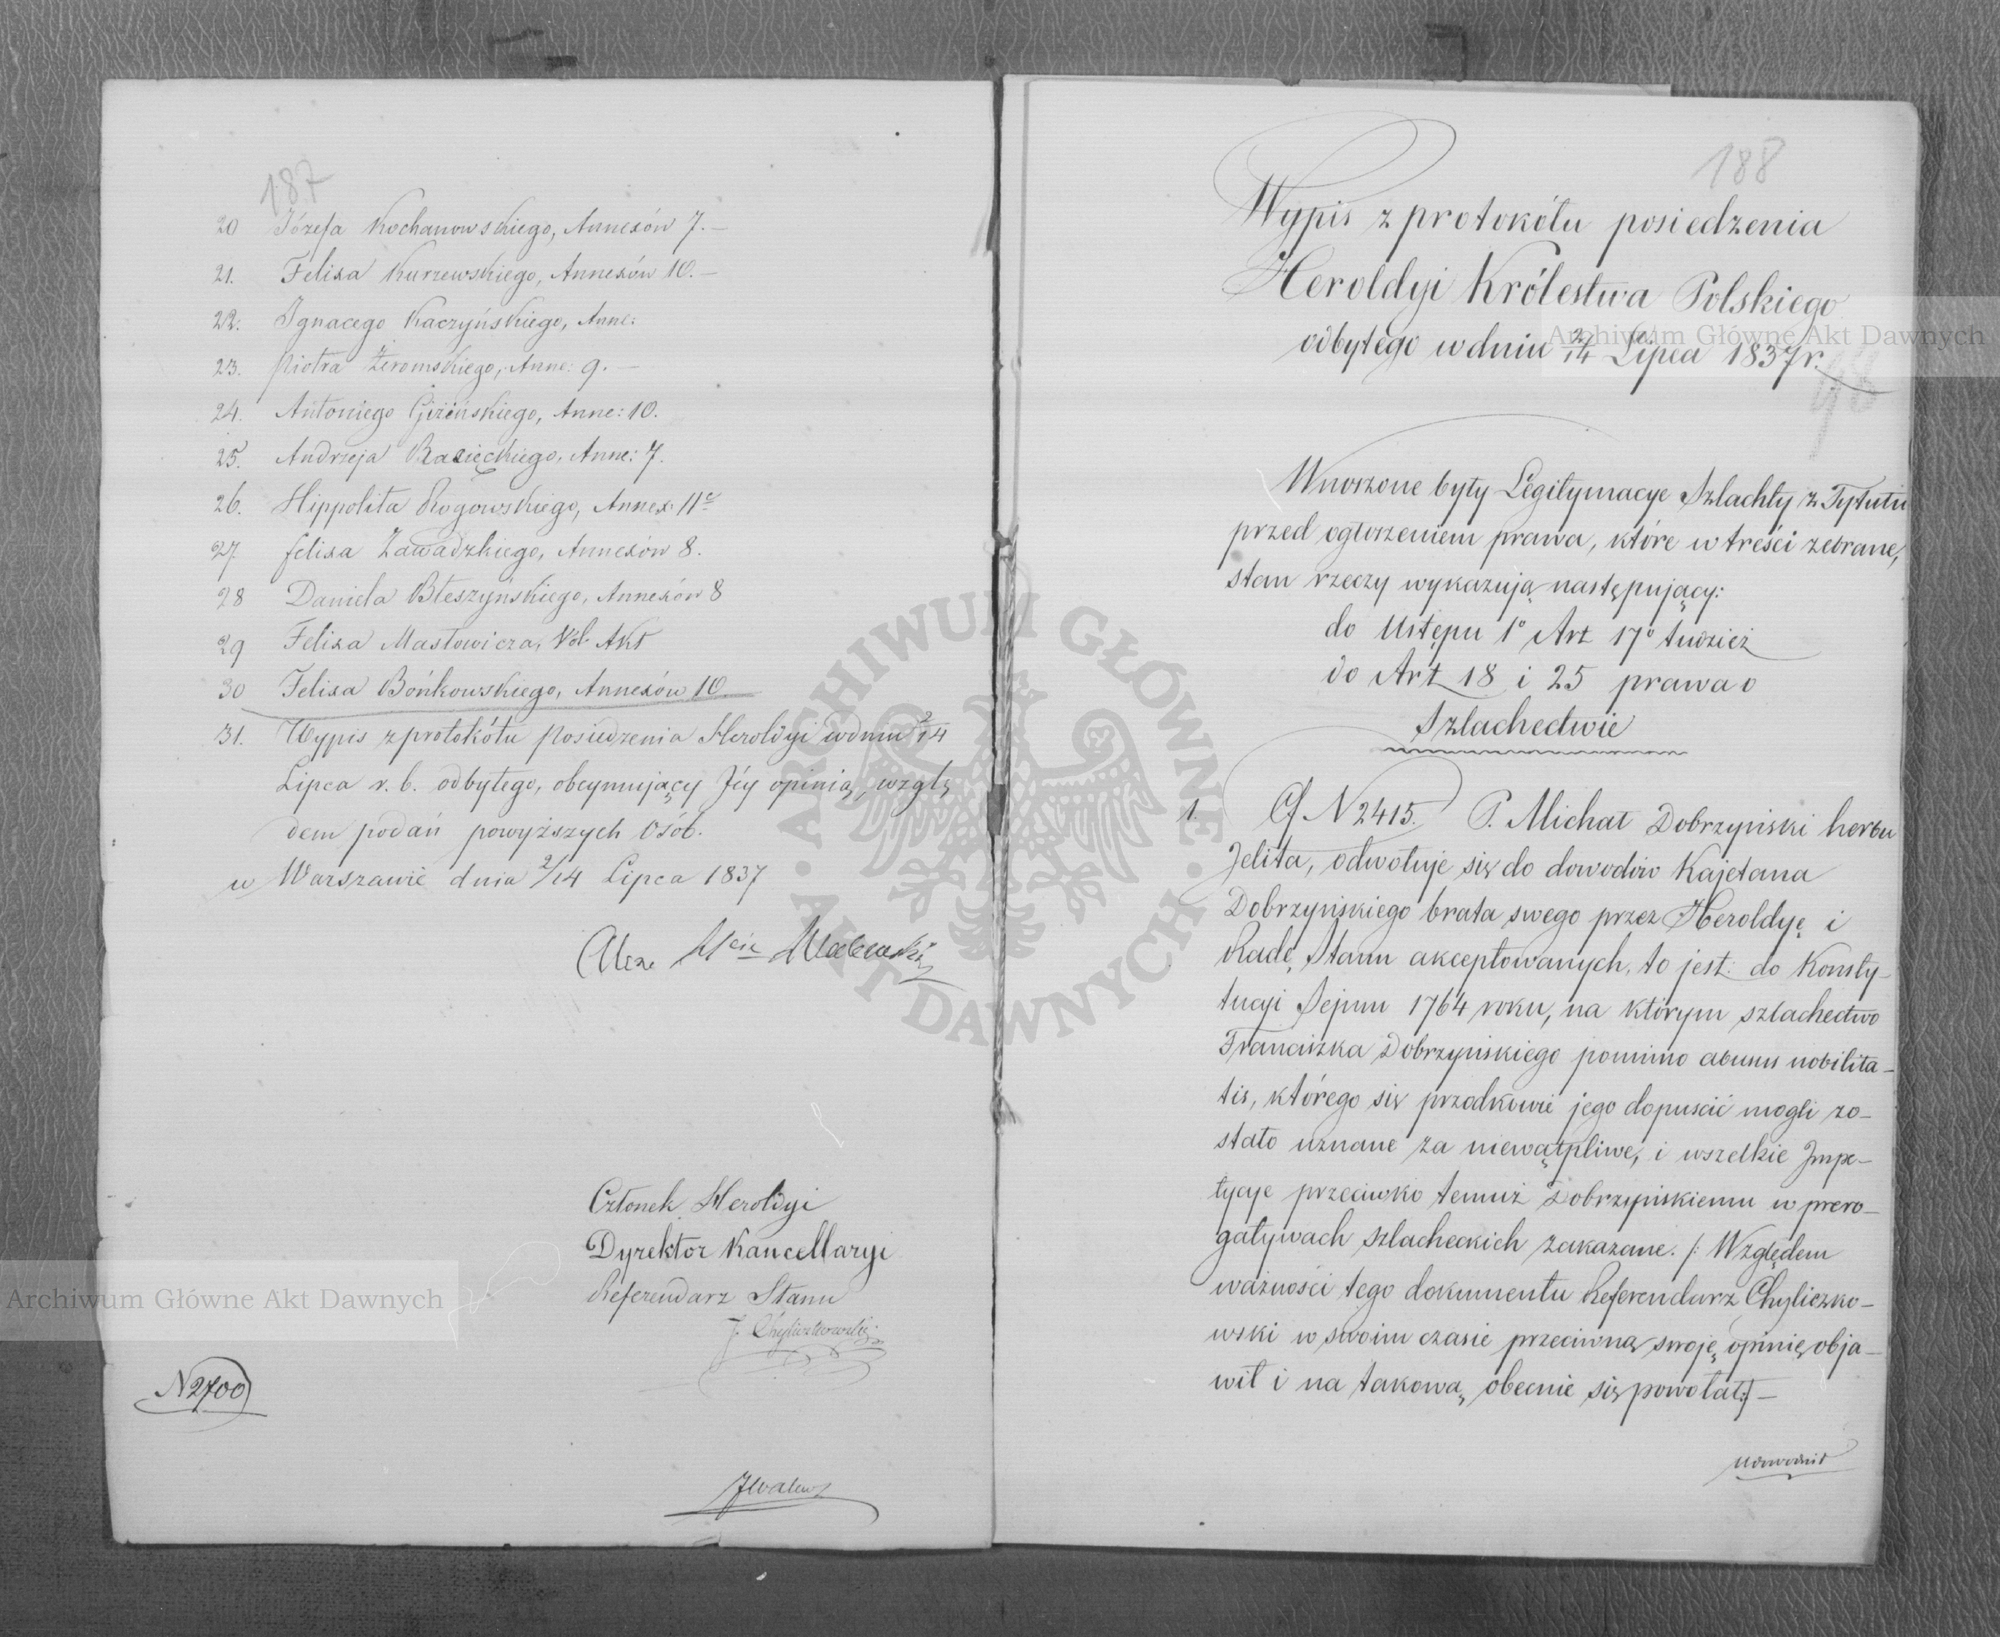 187
20 Józefa Kochanowskiego, Annexów 7.—
21. Felixa Kurzewskiego, Annexów 10.—
22. Ignacego Kaczyńskiego, Anne:
23. Piotra Żeromskiego, Anne: 9.—
24. Antoniego Giżińskiego, Anne: 10.
25. Andrzeja Anne: 7.
26. Hippolita Rogowskiego, Annex: 11
27 felixa Zawadzkiego, Annexów 8.
28 Daniela Błeszyńskiego, Annexów 8
29 Felixa Masłowicza, Vol. Akt
30 Felixa Bońkowskiego, Annexów 10
31. Wypis z protokółu posiedzenia Heroldyi w dniu 2/14
Lipca r. b. odbytego, obeymujący Jéy opinią, wzglę
dem podań powyższych Osób.
w Warszawie dnia 2/14 Lipca 1837
Alex. Walewski
Członek Heroldyi
Dyrektor Kancellaryi
Referendarz Stanu
J. Chyliczkowski
N 2700
JWalews
188
Wypis z protokółu posiedzenia
Heroldyi Królestwa Polskiego
odbytego w dniu 2/14 Lipca 1837 r.
Wnoszone były Legitymacye Szlachty z Tytułu
przed ogłoszeniem prawa, które w treści zebrane,
stan rzeczy wykazują następujący:
do Ustępu 1° Art 17° tudzież
do Art 18 i 25 prawa o
Szlachectwie
1. Cf N 2415. P. Michał Dobrzyński herbu
Jelita, odwołuje się do dowodów Kajetana
Dobrzyńskiego brata swego przez Heroldyę i
Radę Stanu akceptowanych, to jest: do Konsty-
tucyi Sejmu 1764 roku, na którym szlachectwo
Franciszka Dobrzyńskiego pomimo abusus nobilita-
tis, którego się przodkowie jego dopuscić mogli zo-
stało uznane za niewątpliwe, i wszelkie Impe-
tycye przeciwko temuż Dobrzyńskiemu w prero-
gatywach szlacheckich zakazane. /: Względem
ważności tego dokumentu Referendarz Chyliczko-
wski w swoim czasie przeciwną swoję opinię obja-
wił i na takową obecnie się powołał:/—
udowodnił
Archiwum Główne Akt Dawnych
Archiwum Główne Akt Dawnych
ARCHIWUM GŁÓWNE · AKT DAWNYCH ·